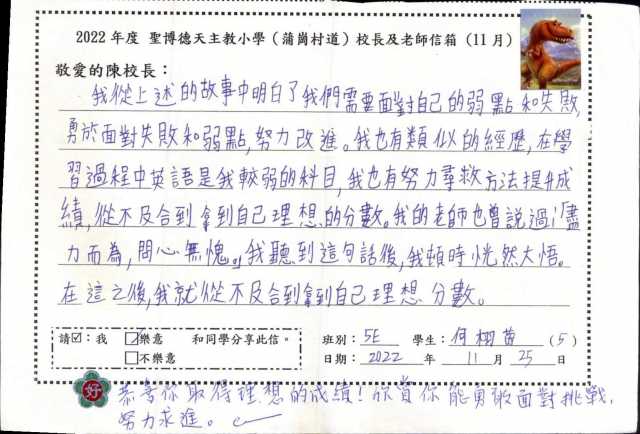 2022 年度 聖博德天主教小學(蒲崗村道)校長及老師信箱(11 月)
敬愛的陳校長：
我從上述的故事中明白了我們需要面對自己的弱點和失敗,
勇於面對失敗和弱點,努力改進。我也有類似的經歷,在學
習過程中英語是我較弱的科目,我也有努力尋救方法提升成
績,從不及合到拿到自己理想的分數。我的老師也曾說過「盡
力而為,問心無愧」。我聽到這句話後,我頓時恍然大悟。
在這之後,我就從不及合到拿到自己理想分數。
請☑：我 ☑樂意 和同學分享此信。 班別：5E 學生：何栩苗 (5)
□不樂意 日期：2022 年 11 月 25 日
好 恭喜你取得理想的成績！欣賞你能勇敢面對挑戰,
努力求進。